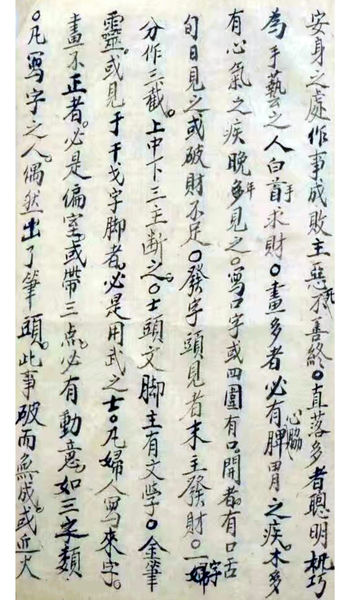 安身之處作事成敗主惡死不善終。直落多者聰明机巧
為手藝之人白手求財。畫多者必有心腦脾胃之疾。木多
有心氣之疾晚年多見之。寫口字或四圍有口。開者。有口舌
旬日見之或破財不足。發字頭見者末主發財。一婦字
分作三截。上中下三主斷之。士頭文脚主有文學。金筆
靈。或見于干戈字脚者。必是用武之士。凡婦人寫來字。
畫不正者。必是偏室。或帶三点。必有動意。如三字類
。凡寫字之人。偶然出了筆頭。此事破而無成。或近火